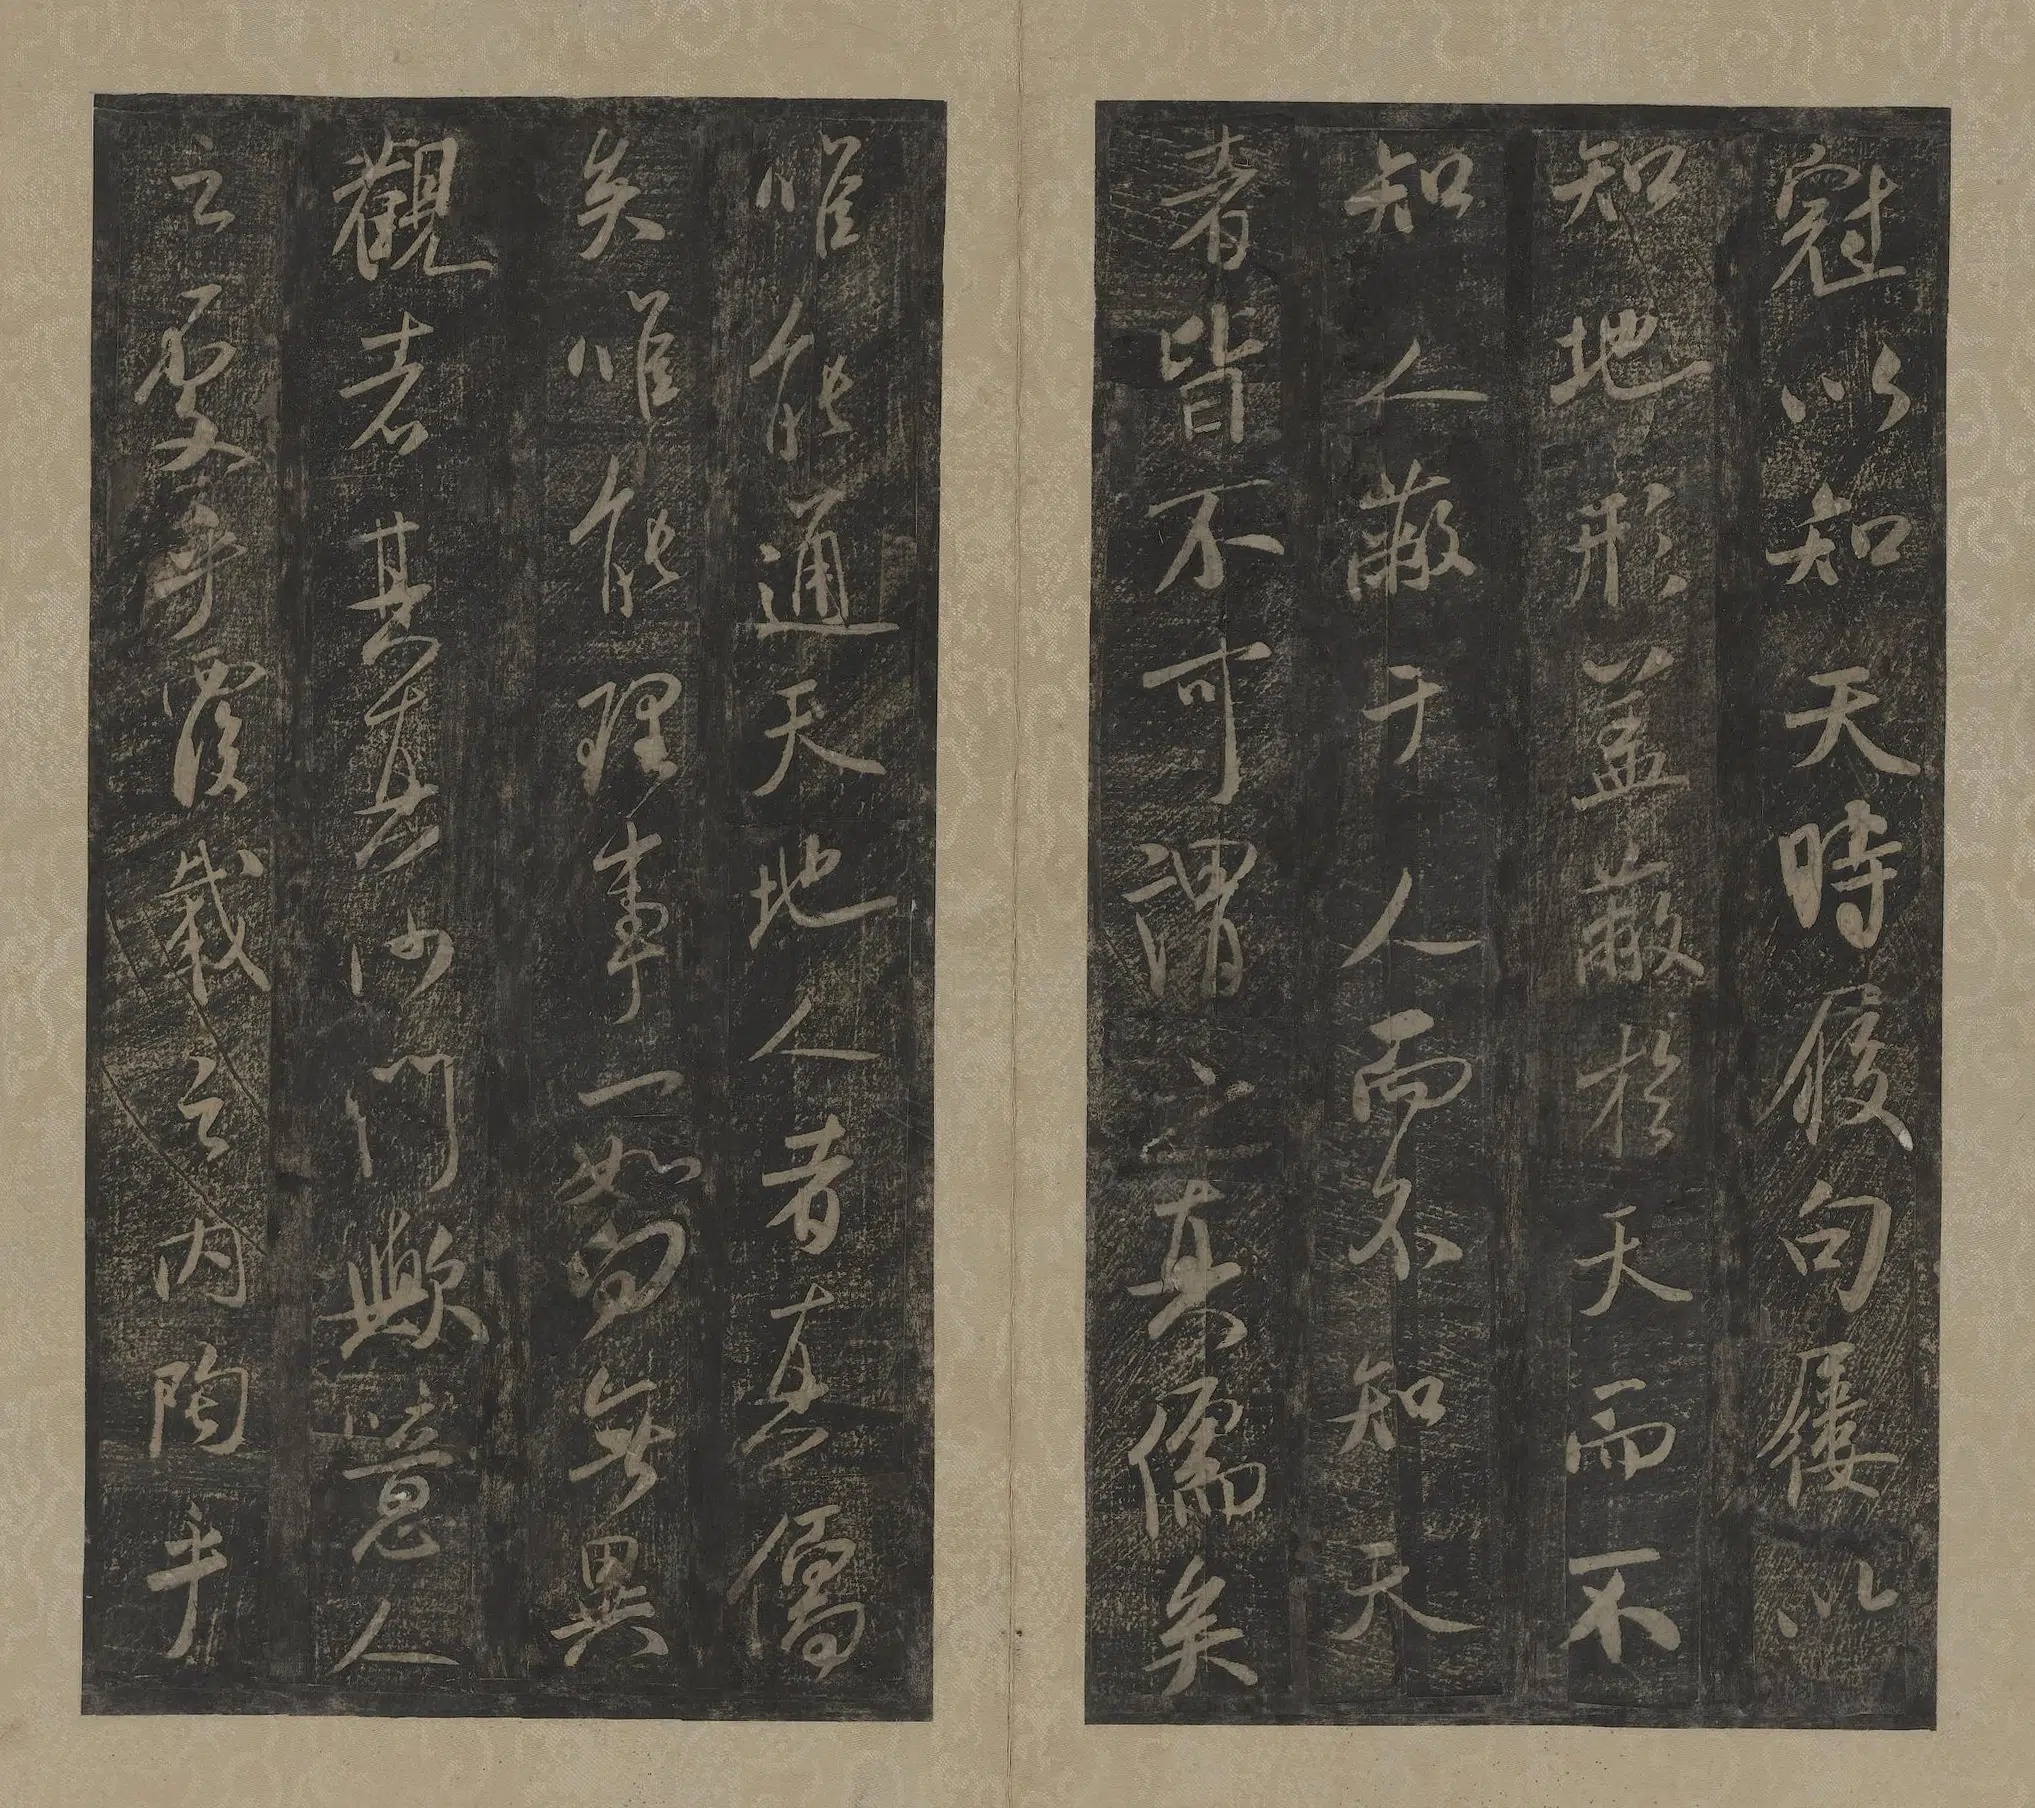 冠以知天時履句屨以
知地形蓋蔽於天而不
知人蔽于人而不知天
者皆不可謂之真儒矣
唯能通天地人者真儒
矣唯能理事一如向無異
觀者其真沙門歟意人
之處乎覆載之内陶乎